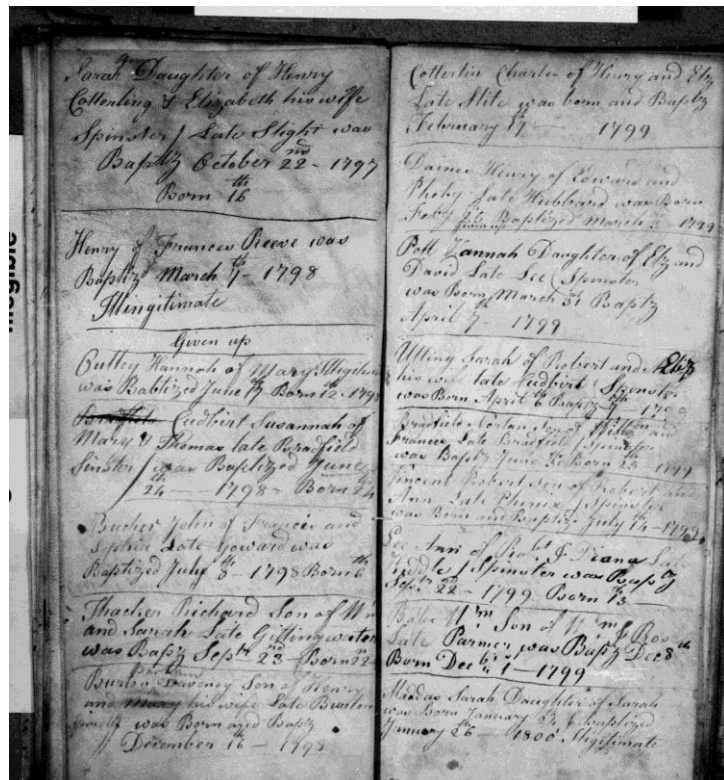 Sarah Daughter of Henry
Cotterling & Elizabeth his wife
Spinster / Late Slight was
Baptz October 22nd - 1797
Born 16th
Henry of Frances Reeve was
Baptz March 7th - 1798
Illingitimate
Given up
Hannah of Mary
was Babtized June Born 12 - 1798
Cudbert Susannah of
Mary & Thomas late Bradfield
Sinster / was Baptized June
24th - 1798 - Born 24
John of Francis and
Late Goward was
Baptized July 8th - 1798 Born 6th
Thacker Richard Son of Wm
and Sarah Late Gittingwater
was Bapz Septh 23rd - Born 22
Son of Henry
and Mary his wife Late
was Born and Bapz
December 16th - 1798
Cotterlin Charles of Henry and Elz
Late Slite was born and Baptz
February 17 - 1799
Daines Henry of Edward and
Phoby Late Hubbard was Born
Feby 26 Baptized March 3 1799
Pott Hannah Daughter of Elz and
David Late Lee (Spinster
was Born March 31 Baptz
April 7th - 1799
Utting Sarah of Robert and Elz
his wife late Cudbert (Spinster
was Born April 6th Bapz 1799
Bradfield Son of and
Frances Late Bradfield / Spinster
was Baptz June Born 23 1799
Vincent Robert Son of Robert and
Ann Late Phenix / Spinster
was Born and Baptize July 14 - 1799
Lee Ann of Robt & Diana Late
/ Spinster was Bapz
Septr 22nd - 1799 Born 13
Wm Son of Wm &
Late Parmer was Bapz Dec 8th
Born Decbr 1 - 1799
Sarah Daughter of Sarah
was Born January 24 & baptized
January 26 - 1800 Illigitimate